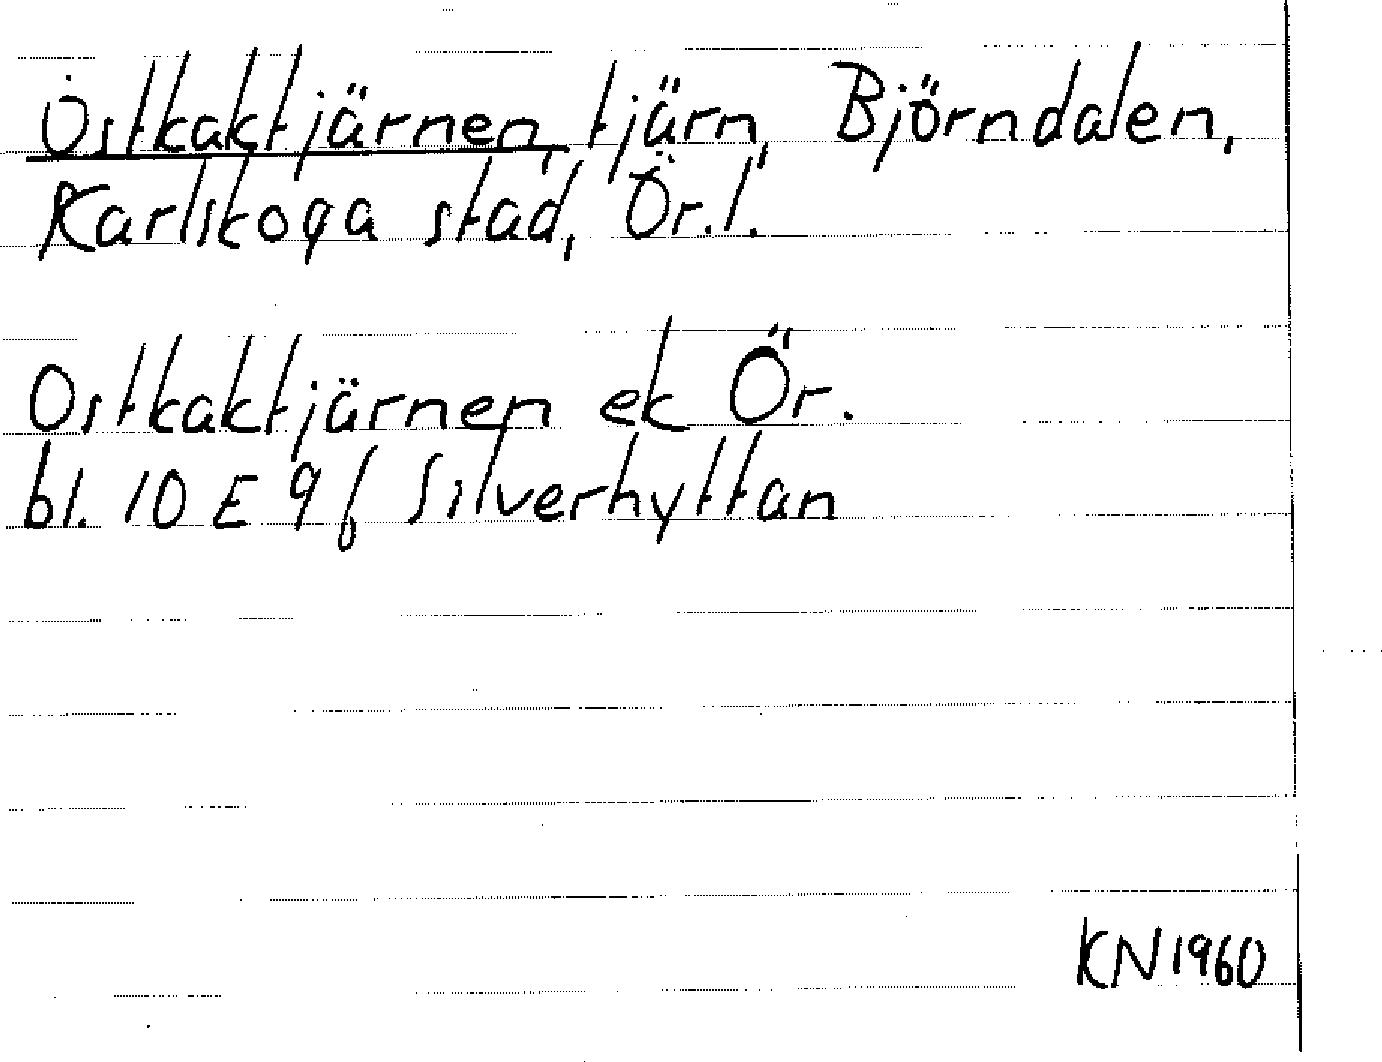 Ostkaktjärnen, tjärn, Björndalen,
Karlskoga stad, Ör.l.
Ostkaktjärnen ek Ör.
bl. 10 E 9 f Silverhyttan
KN 1960